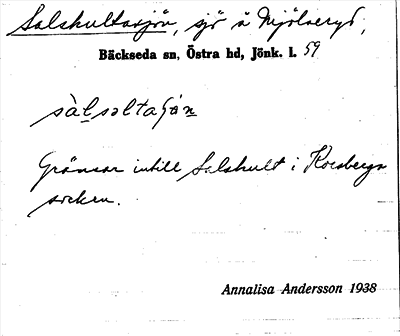 Salshultasjön, sjö å Mjölaryd,
Bäckseda sn, Östra hd, Jönk. l. 59
sàlsəltaʃǿn
Gränsar intill Salshult i Korsberga
socken.
Annalisa Andersson 1938